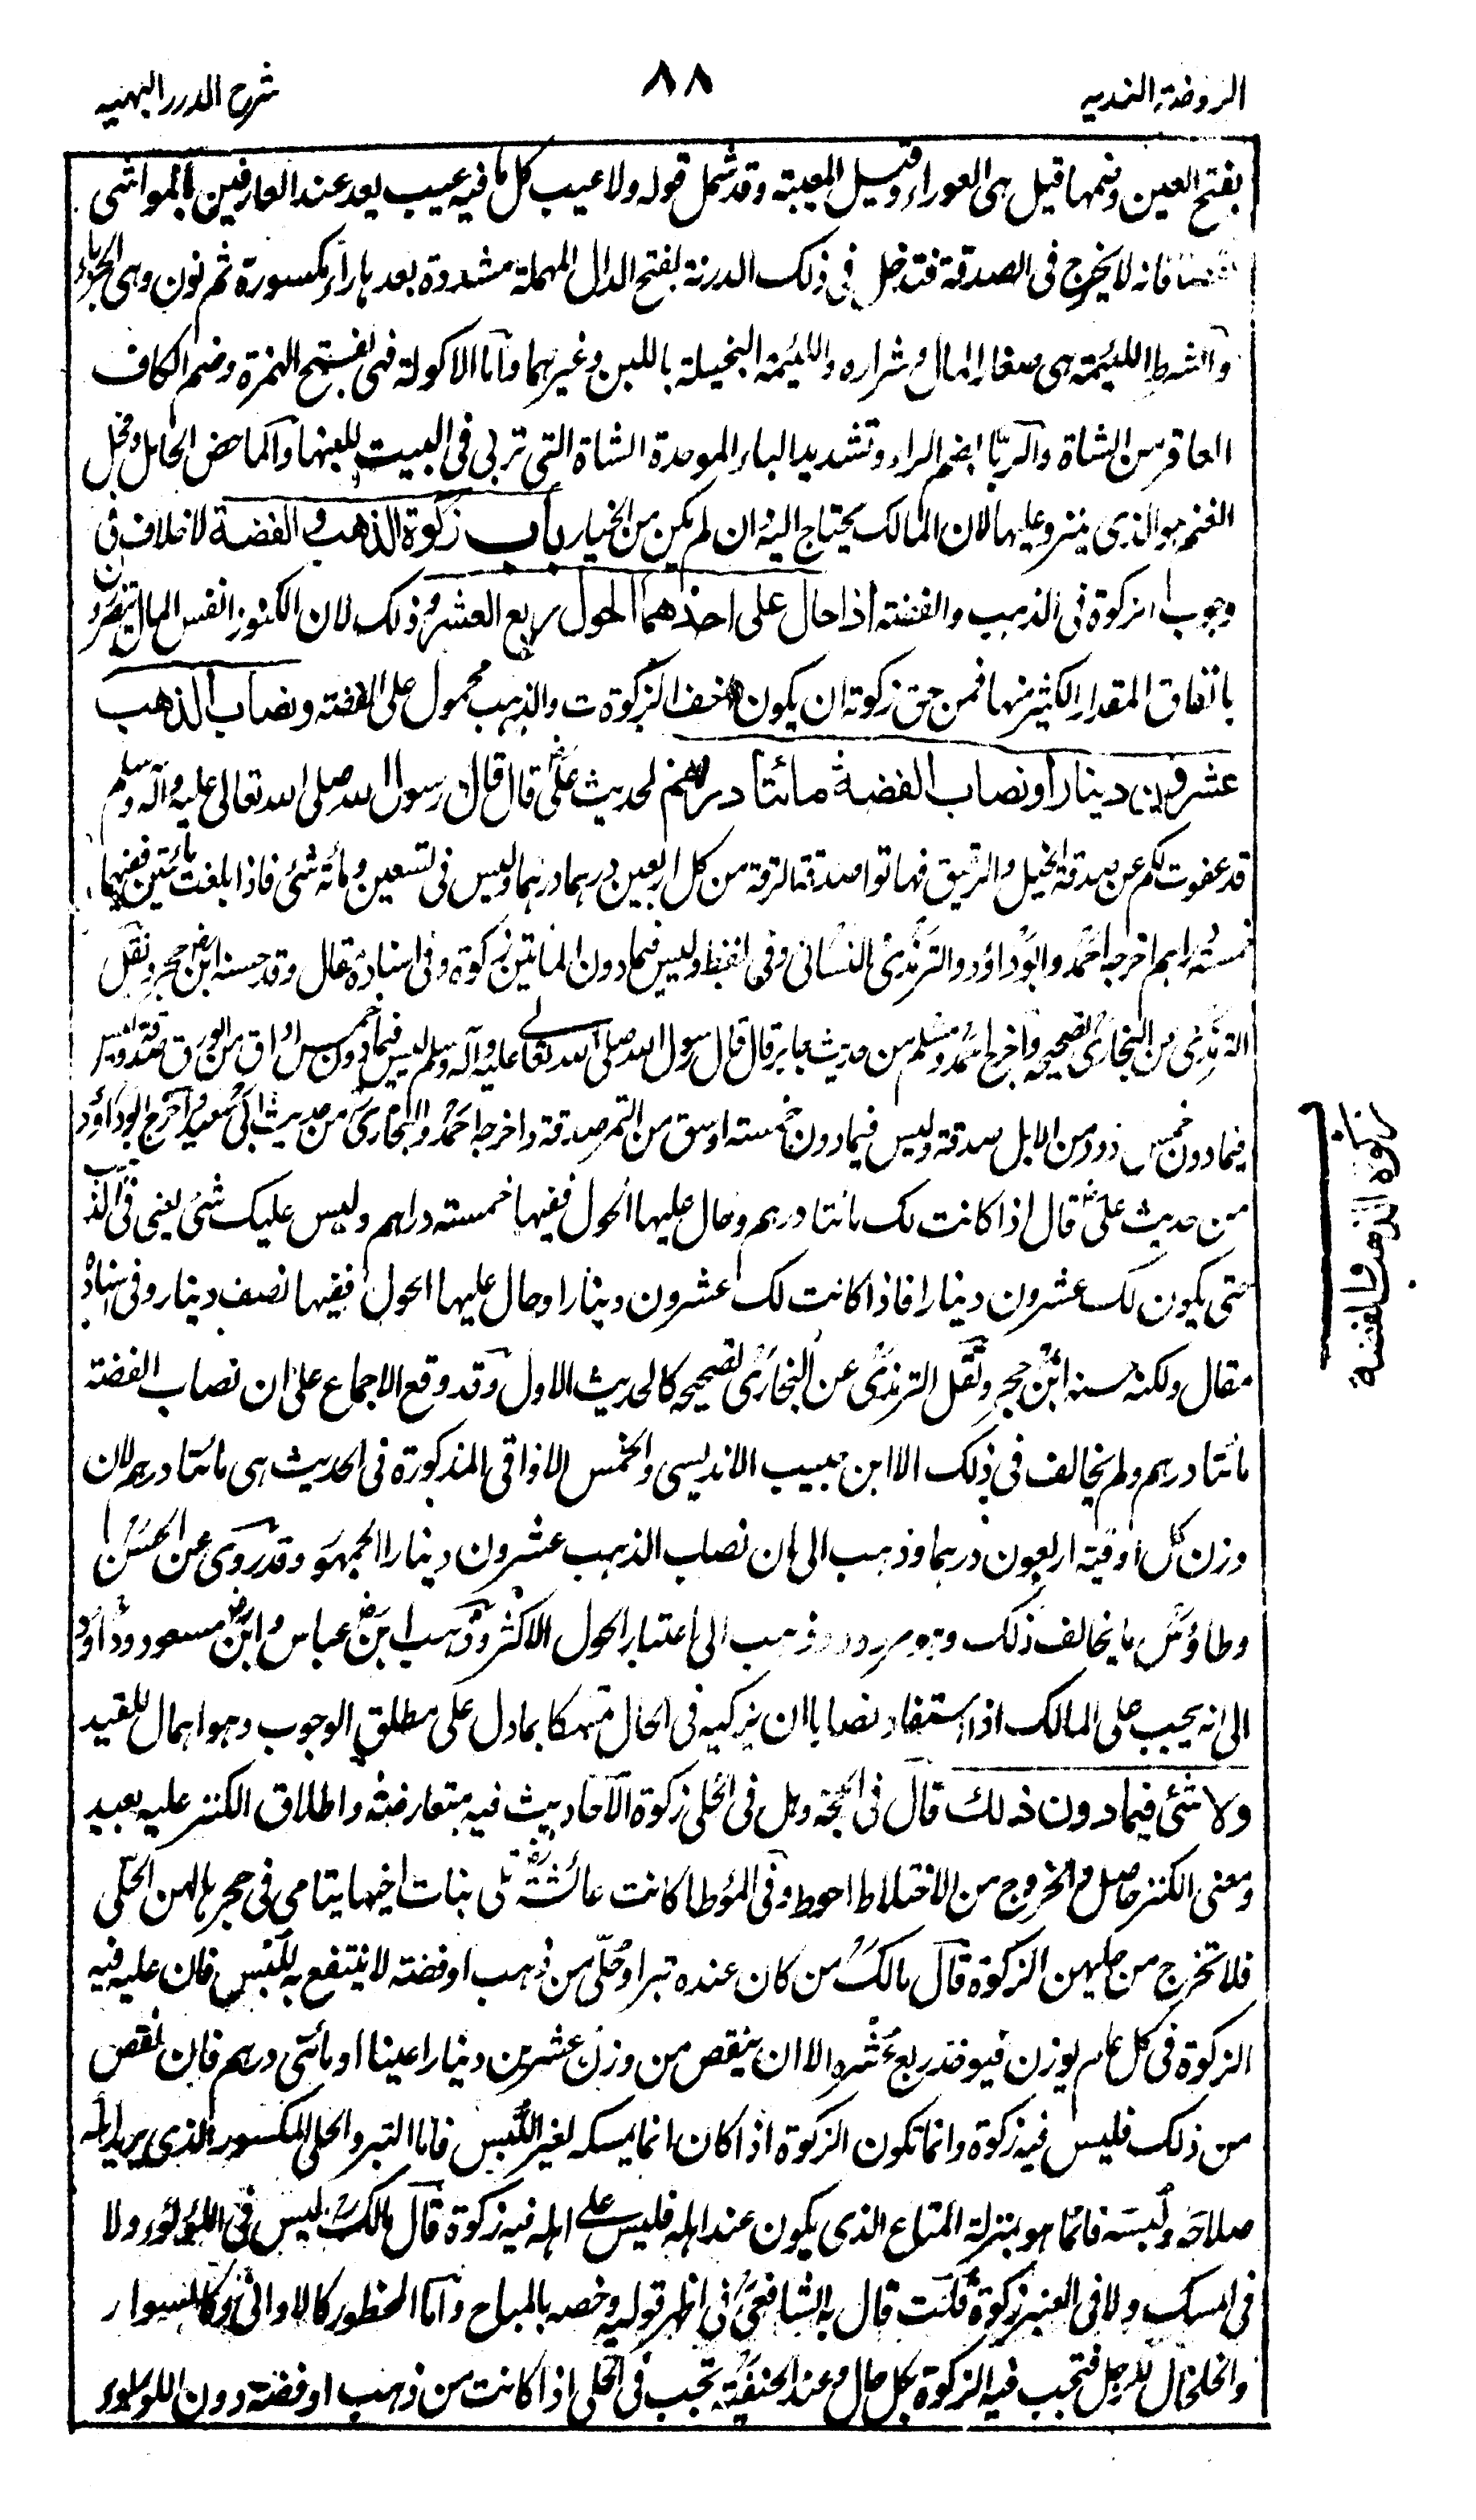 الروضة الندیه
۸۸
شرح الدرر البهیه
بفتح العین وضمها قیل هی العوراء وقیل المعیبة وقد شمل قوله ولا عیب کل ما فیه عیب یعد عند العارفین بالمواشی
فانه لا یخرج فی الصدقة فتدخل فی ذلک الدرنة بفتح الدال المهملة مشددة بعدها راء مکسورة ثم نون وهی الجرباء
والشرط اللئیمة هی صغار المال وشراره واللئیمة البخیلة باللبن وغیرهما واما الاکولة فهی بفتح الهمزة وضم الکاف
العاقر من الشاة والربا بضم الراء وتشدید الباء الموحدة الشاة التی تربی فی البیت للبنها والماخض الحامل وفحل
الغنم هو الذی ینزو علیها لان المالک یحتاج الیه ان لم یکن من الخیار باب زکوة الذهب والفضة لا خلاف فی
وجوب الزکوة فی الذهب والفضة اذا حال علی احدهما الحول ربع العشر وذلک لان الکنوز انفس المال یتضررون
بانفاق المقدار الکثیر منها فمن حق زکوته ان یکون اخف الزکوت والذهب محمول علی الفضة ونصاب الذهب
عشرون دینارا ونصاب الفضة مائتا درهم لحدیث علی رض قال قال رسول الله صلی الله تعالی علیه وآله وسلم
قد عفوت لکم عن صدقة الخیل والرقیق فهاتوا صدقة الرقة من کل اربعین درهما درهما ولیس فی تسعین ومائة شئ فاذا بلغت مائتین ففیها
خمسة دراهم اخرجه احمد وابو داؤد والترمذی والنسائی وفی لفظ ولیس فیما دون المائتین زکوة وفی اسناده مقال وقد حسنه ابن حجر ونقل
الترمذی عن البخاری تصحیحه واخرج احمد ومسلم من حدیث جابر قال قال رسول الله صلی الله تعالی علیه وآله وسلم لیس فیما دون خمس اواق من الورق صدقة ولیس
فیما دون خمس ذود من الابل صدقة ولیس فیما دون خمسة اوسق من التمر صدقة واخرجه احمد والبخاری من حدیث ابی سعید واخرج ابو داؤد
من حدیث علی رض قال اذا کانت لک مائتا درهم وحال علیها الحول ففیها خمسة دراهم ولیس علیک شئ یعنی فی الذهب
حتی یکون لک عشرون دینارا فاذا کانت لک عشرون دینارا وحال علیها الحول ففیها نصف دینار وفی اسناده
مقال ولکنه حسنه ابن حجر ونقل الترمذی عن البخاری تصحیحه کالحدیث الاول وقد وقع الاجماع علی ان نصاب الفضة
مائتا درهم ولم یخالف فی ذلک الا ابن حبیب الاندلسی والخمس الاواقی المذکورة فی الحدیث هی مائتا درهم لان
وزن کل اوقیة اربعون درهما وذهب الی ان نصاب الذهب عشرون دینارا الجمهور وقد روی عن الحسن
وطاؤس ما یخالف ذلک وهو مردود وذهب الی اعتبار الحول الاکثر وذهب ابن عباس وابن مسعود وداؤد
الی انه یجب علی المالک اذا استفاد نصابا ان یزکیه فی الحال تمسکا بما دل علی مطلق الوجوب وهو اهمال للقید
ولا شئ فیما دون ذلک قال فی الحجة وهل فی الحلی زکوة الاحادیث فیه متعارضة واطلاق الکنز علیه بعید
ومعنی الکنز حاصل والخروج من الاختلاط احوط وفی المؤطا کانت عائشة رض تلی بنات اخیها یتامی فی حجرها لهن الحلی
فلا تخرج من حلیهن الزکوة قال مالک من کان عنده تبر او حلی من ذهب او فضة لا ینتفع به للبس فان علیه فیه
الزکوة فی کل عام یوزن فیوخذ ربع عشره الا ان ینقص من وزن عشرین دینارا عینا او مائتی درهم فان نقص
من ذلک فلیس فیه زکوة وانما تکون الزکوة اذا کان انما یمسکه لغیر اللبس فاما التبر والحلی المکسور الذی یرید اهله
صلاحه ولبسه فانما هو بمنزلة المتاع الذی یکون عند اهله فلیس علی اهله فیه زکوة قال مالک لیس فی اللؤلؤ ولا
فی المسک ولا فی العنبر زکوة قلت قال به الشافعی فی اظهر قولیه وخصه بالمباح واما المحظور کالاوانی وکالسوار
والخلخال للرجل فتجب فیه الزکوة بکل حال وعند الحنفیة تجب فی الحلی اذا کانت من ذهب او فضة دون اللؤلؤ
زکوة الذهب والفضة